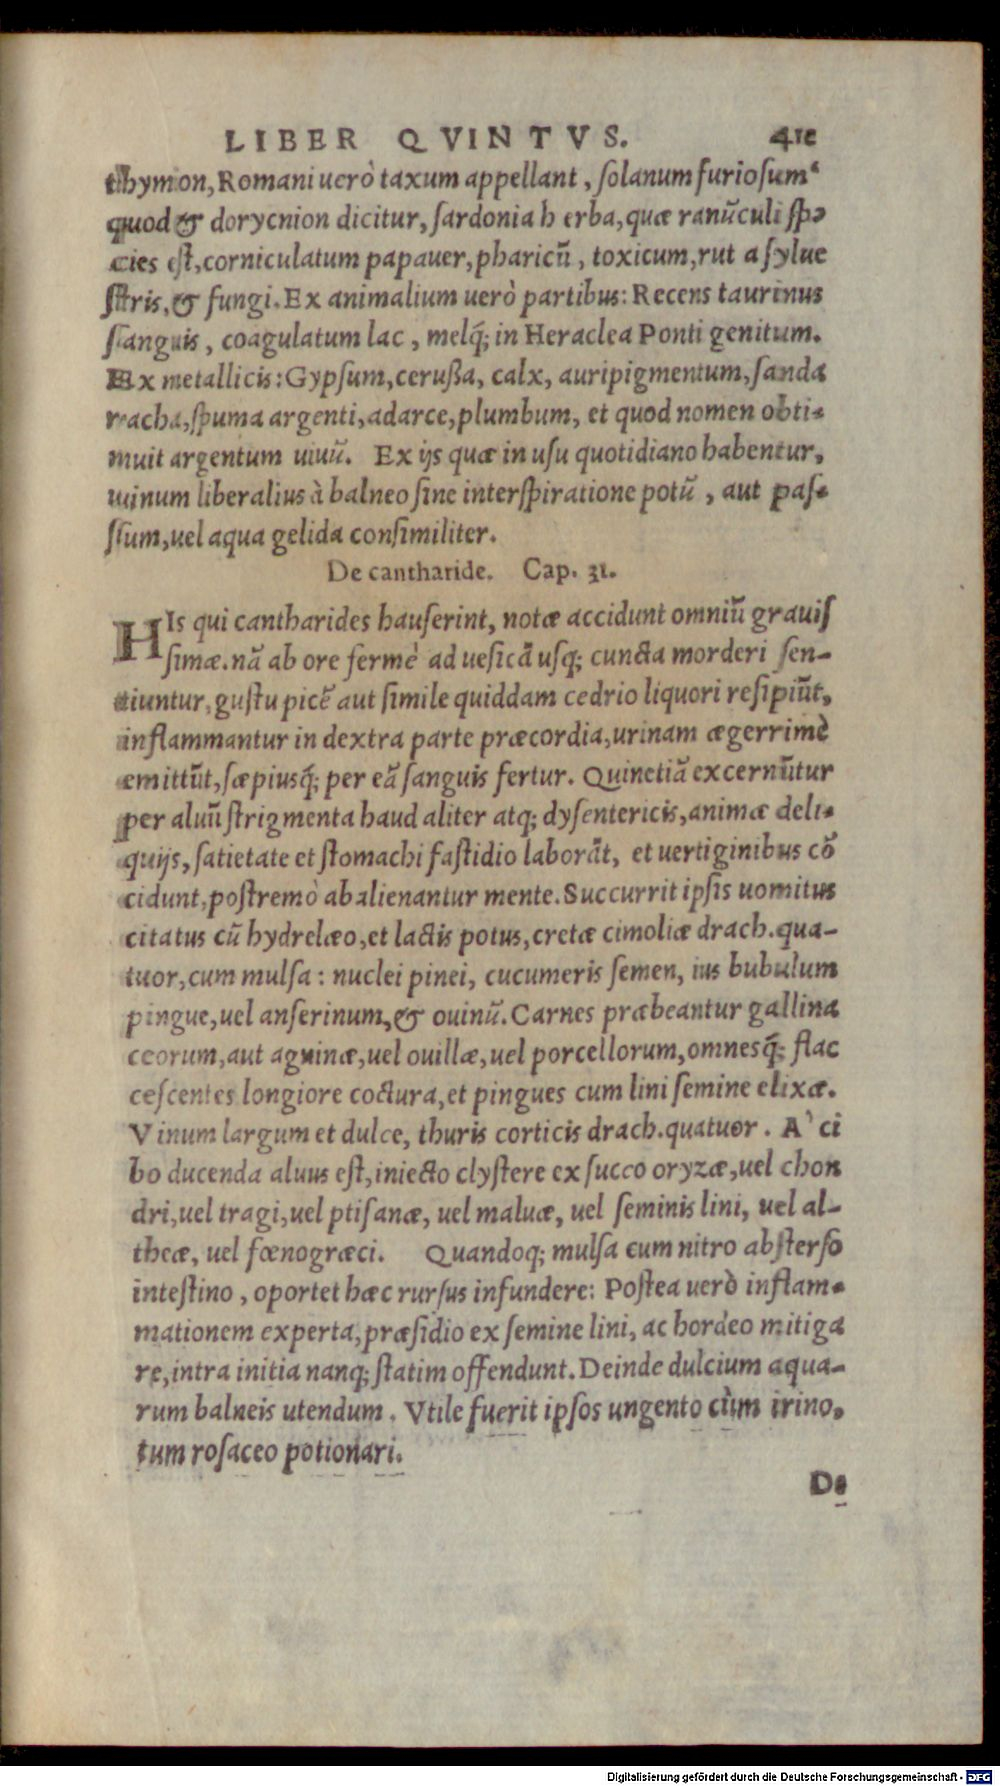 LIBER QVINTVS. 411
thymion, Romani uerò taxum appellant, solanum furiosum
quod & dorycnion dicitur, sardonia h erba, quæ ranūculi spe
cies est, corniculatum papauer, pharicū, toxicum, rut a sylue
stris, & fungi. Ex animalium uerò partibus: Recens taurinus
sanguis, coagulatum lac, melq́; in Heraclea Ponti genitum.
Ex metallicis: Gypsum, cerußa, calx, auripigmentum, sanda
racha, spuma argenti, adarce, plumbum, et quod nomen obti-
nuit argentum uiuū. Ex ijs quæ in usu quotidiano habentur,
uinum liberalius à balneo sine interspiratione potū, aut pas-
sum, uel aqua gelida consimiliter.
De cantharide. Cap. 31.
HIs qui cantharides hauserint, notæ accidunt omniū grauis
simæ. nā ab ore fermè ad uesicā usq; cuncta morderi sen-
tiuntur, gustu picē aut simile quiddam cedrio liquori resipiūt,
inflammantur in dextra parte præcordia, urinam ægerrimè
emittūt, sæpiusq́; per eā sanguis fertur. Quinetiā excernūtur
per aluū strigmenta haud aliter atq; dysentericis, animæ deli-
quijs, satietate et stomachi fastidio laborāt, et uertiginibus cō
cidunt, postremò abalienantur mente. Succurrit ipsis uomitus
citatus cū hydrelæo, et lactis potus, cretæ cimoliæ drach. qua-
tuor, cum mulsa: nuclei pinei, cucumeris semen, ius bubulum
pingue, uel anserinum, & ouinū. Carnes præbeantur gallina
ceorum, aut agninæ, uel ouillæ, uel porcellorum, omnesq́; flac
cescentes longiore coctura, et pingues cum lini semine elixæ.
Vinum largum et dulce, thuris corticis drach. quatuor. A` ci
bo ducenda aluus est, iniecto clystere ex succo oryzæ, uel chon
dri, uel tragi, uel ptisanæ, uel maluæ, uel seminis lini, uel al-
theæ, uel fœnogræci. Quandoq; mulsa cum nitro absterso
intestino, oportet hæc rursus infundere: Postea uerò inflam-
mationem experta, præsidio ex semine lini, ac hordeo mitiga
re, intra initia nanq; statim offendunt. Deinde dulcium aqua-
rum balneis utendum. Vtile fuerit ipsos ungento cùm irino,
tum rosaceo potionari.
De
Digitalisierung gefördert durch die Deutsche Forschungsgemeinschaft - DFG